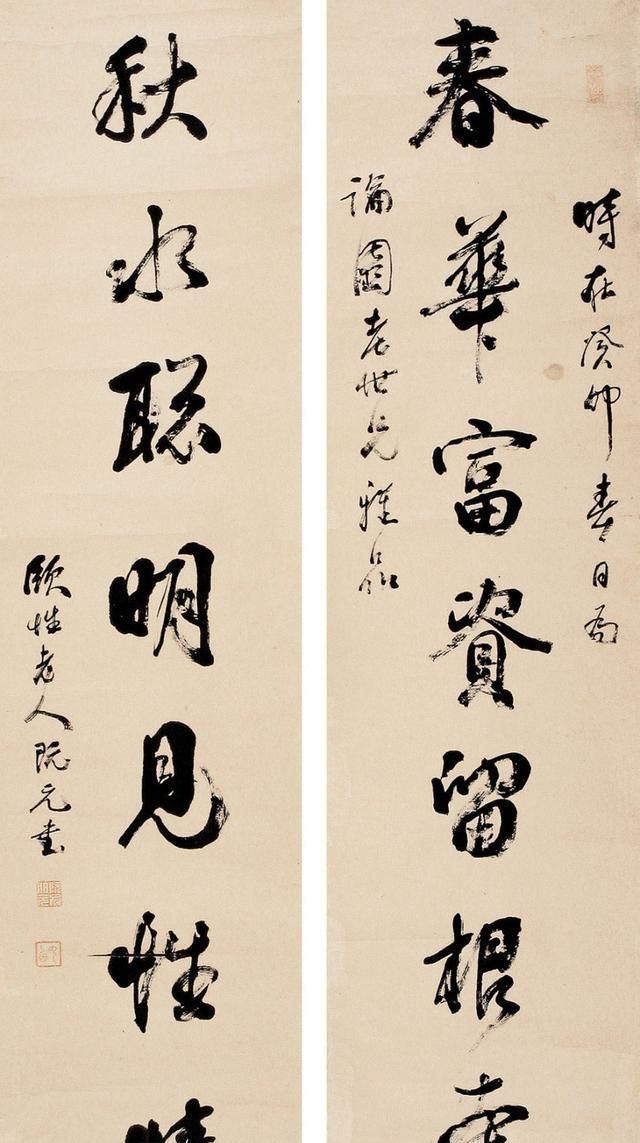 時在癸卯春日為
春華富資留根
論園老世兄雅品
秋水聰明見性情
頤性老人阮元書